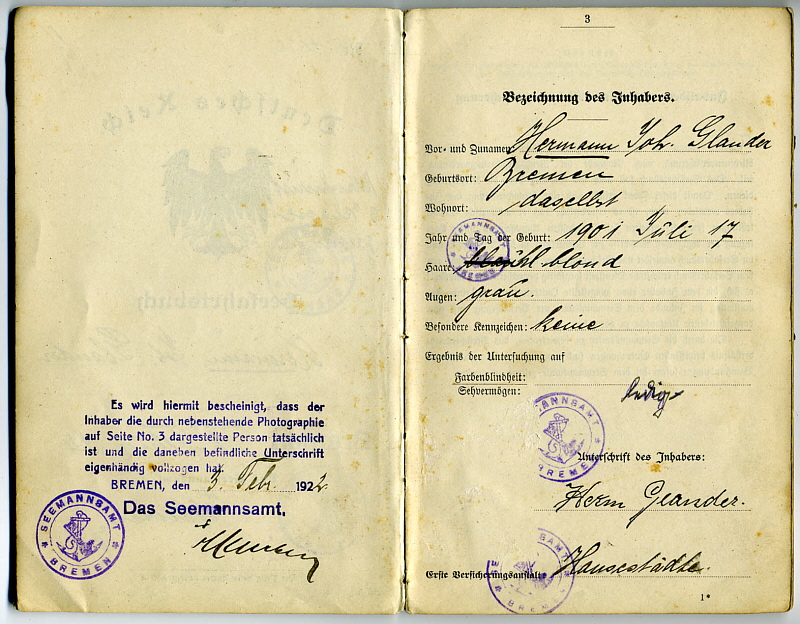 Es wird hiermit bescheinigt, dass der
Inhaber die durch nebenstehende Photographie
auf Seite No. 3 dargestellte Person tatsächlich
ist und die daneben befindliche Unterschrift
eigenhändig vollzogen hat.
BREMEN, den 3. Febr. 1922.
Das Seemannsamt,
SEEMANNSAMT
BREMEN
3
Bezeichnung des Inhabers.
Vor- und Zunamen: Hermann Joh. Glander
Geburtsort: Bremen
Wohnort: daselbst
Jahr und Tag der Geburt: 1901 Juli 17
SEEMANNSAMT
BREMEN
Haare: blond
Augen: grau.
Besondere Kennzeichen: keine
Ergebnis der Untersuchung auf
Farbenblindheit:
Sehvermögen:
ledig
MANNSAMT
BREMEN
Unterschrift des Inhabers:
Herm Glander.
Erste Versicherungsanstalt: Hansestädte.
AMT
BREMEN
1*